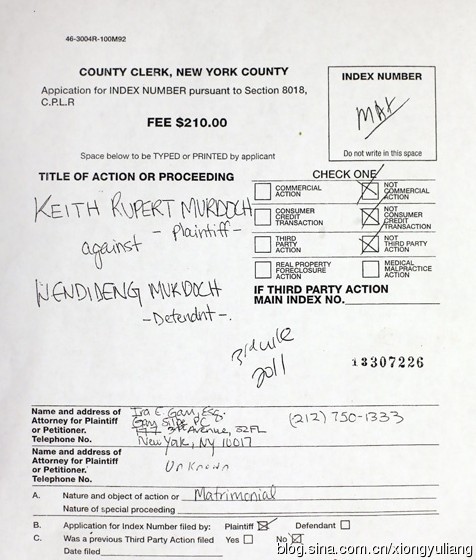 46-3004R-100M92
COUNTY CLERK, NEW YORK COUNTY
Application for INDEX NUMBER pursuant to Section 8018,
C.P.L.R
FEE $210.00
INDEX NUMBER
Do not write in this space
Space below to be TYPED or PRINTED by applicant
TITLE OF ACTION OR PROCEEDING
CHECK ONE
COMMERCIAL ACTION
NOT COMMERCIAL ACTION
CONSUMER CREDIT TRANSACTION
NOT CONSUMER CREDIT TRANSACTION
THIRD PARTY ACTION
NOT THIRD PARTY ACTION
REAL PROPERTY FORECLOSURE ACTION
MEDICAL MALPRACTICE ACTION
KEITH RUPERT MURDOCH
- Plaintiff -
against
WENDI DENG MURDOCH
- Defendnt -.
IF THIRD PARTY ACTION
MAIN INDEX NO.
2011
13307226
Name and address of
Attorney for Plaintiff
or Petitioner.
Telephone No.
Ira E. Garr, Esq.
Avenue, 32FL
New York, NY 10017
(212) 750-1333
Name and address of
Attorney for Plaintiff
or Petitioner.
Telephone No.
Unknown
A. Nature and object of action or Matrimonial
Nature of special proceeding
B. Application for Index Number filed by: Plaintiff Defendant
C. Was a previous Third Party Action filed Yes No
Date filed
blog.sina.com.cn/xiongyuliang